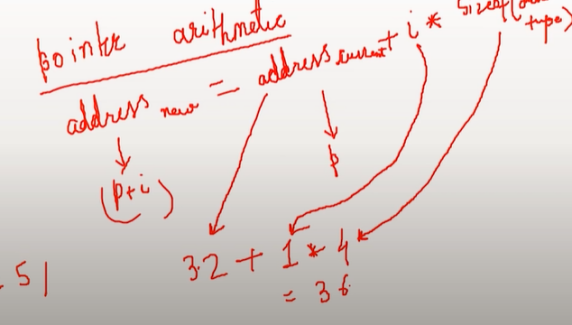 pointer arithmetic
address new = address current + i * sizeof(
type)
(p+i)
p
32 + 1 * 4
= 36
51